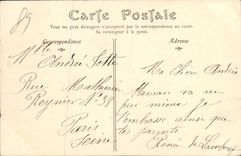 89
Carte Postale
Tous les pays étrangers n'acceptent pas la correspondance au recto.
Se renseigner à la poste.
Correspondance
Adresse
Mlle André
Rue Mathurin
Reynier Nº 38
Paris
Seine
Ma Chère André
Maman va un
peu mieux je
t'embrasse ainsi que
tes parents
René de